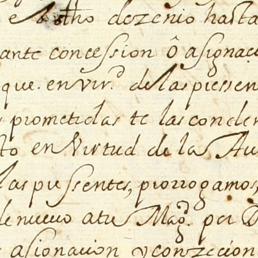 e dho dezenio hasta
ante concession ô asignac
que en vir.d de las pressen
prometidas te las conden
to en Virtud de la Au
las pressentes, prorrogamos,
de nuevo a tu Mag.d por D
asignacion y conzecion